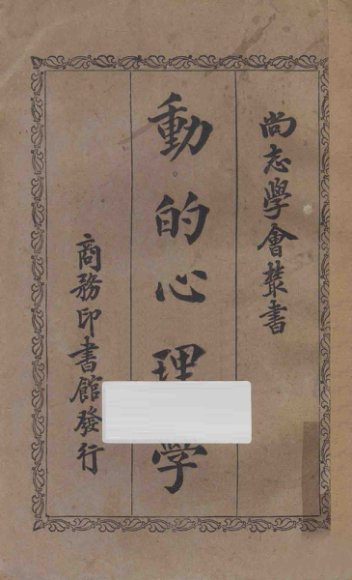 尚志學會叢書
動的心理學
商務印書館發行